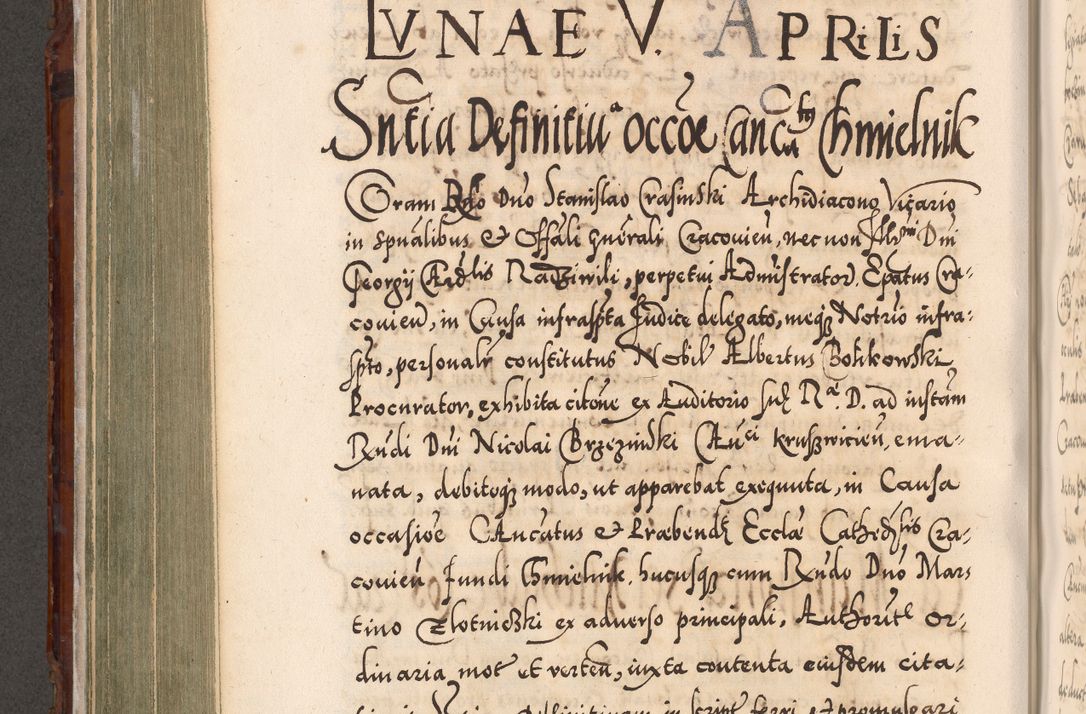 LVNAE V. APRILIS
Sntia Definitiua occõe Canctus Chmielnik
Coram Rndo Dno Stanislao Crasinski Archidiacono Vicario
in spũalibus et Offãli gnẽrali Cracouień, nec non Illmi Dni
Georgij Cardlis Radziwili, perpetui Administrator. Epatus Cra-
couień, in Causa infraspta Judice delegato, meq3 Notrio infra-
spto, personalr constitutus Nobil Albertus Bolikowski
Procurator, exhibita citoñe ex Auditorio suæ Ræ. D. ad instam
Rndi Dni Nicolai Brzezinski Cauci Kruszwicień, ema-
nata, debitoq3 modo, ut apparebat exequuta, in Causa
occasioe Caucatus et Præbendæ Ecclæ Cathedlis Cra-
couień fundi Chmielnik, hucusq3 cum Rndo Dno Mar-
tino Zlotniczki ex aduerso principali, Authorite or-
dinaria mot et verteñ, iuxta contenta eiusdem cita-
in script ferri et promulgari